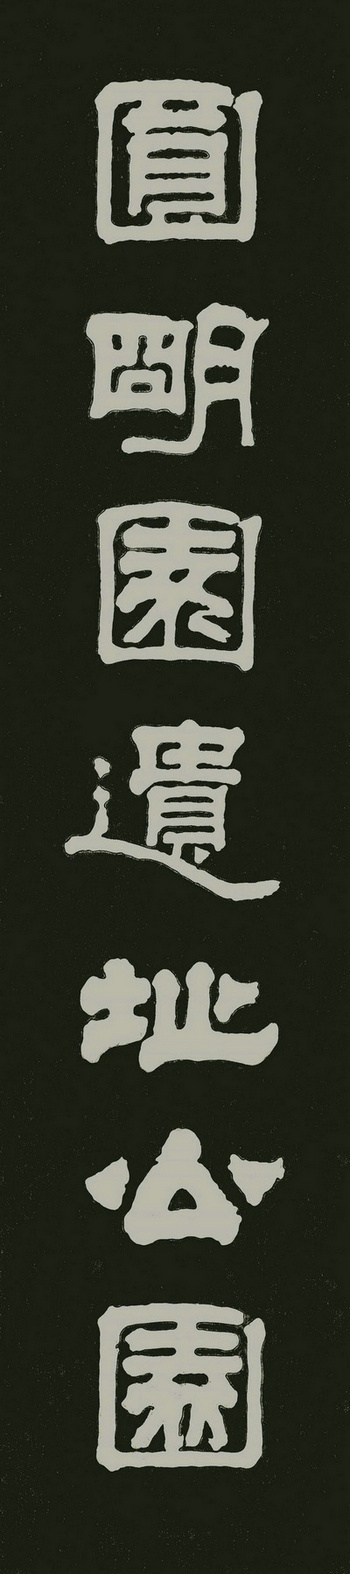 圓明園遺址公園